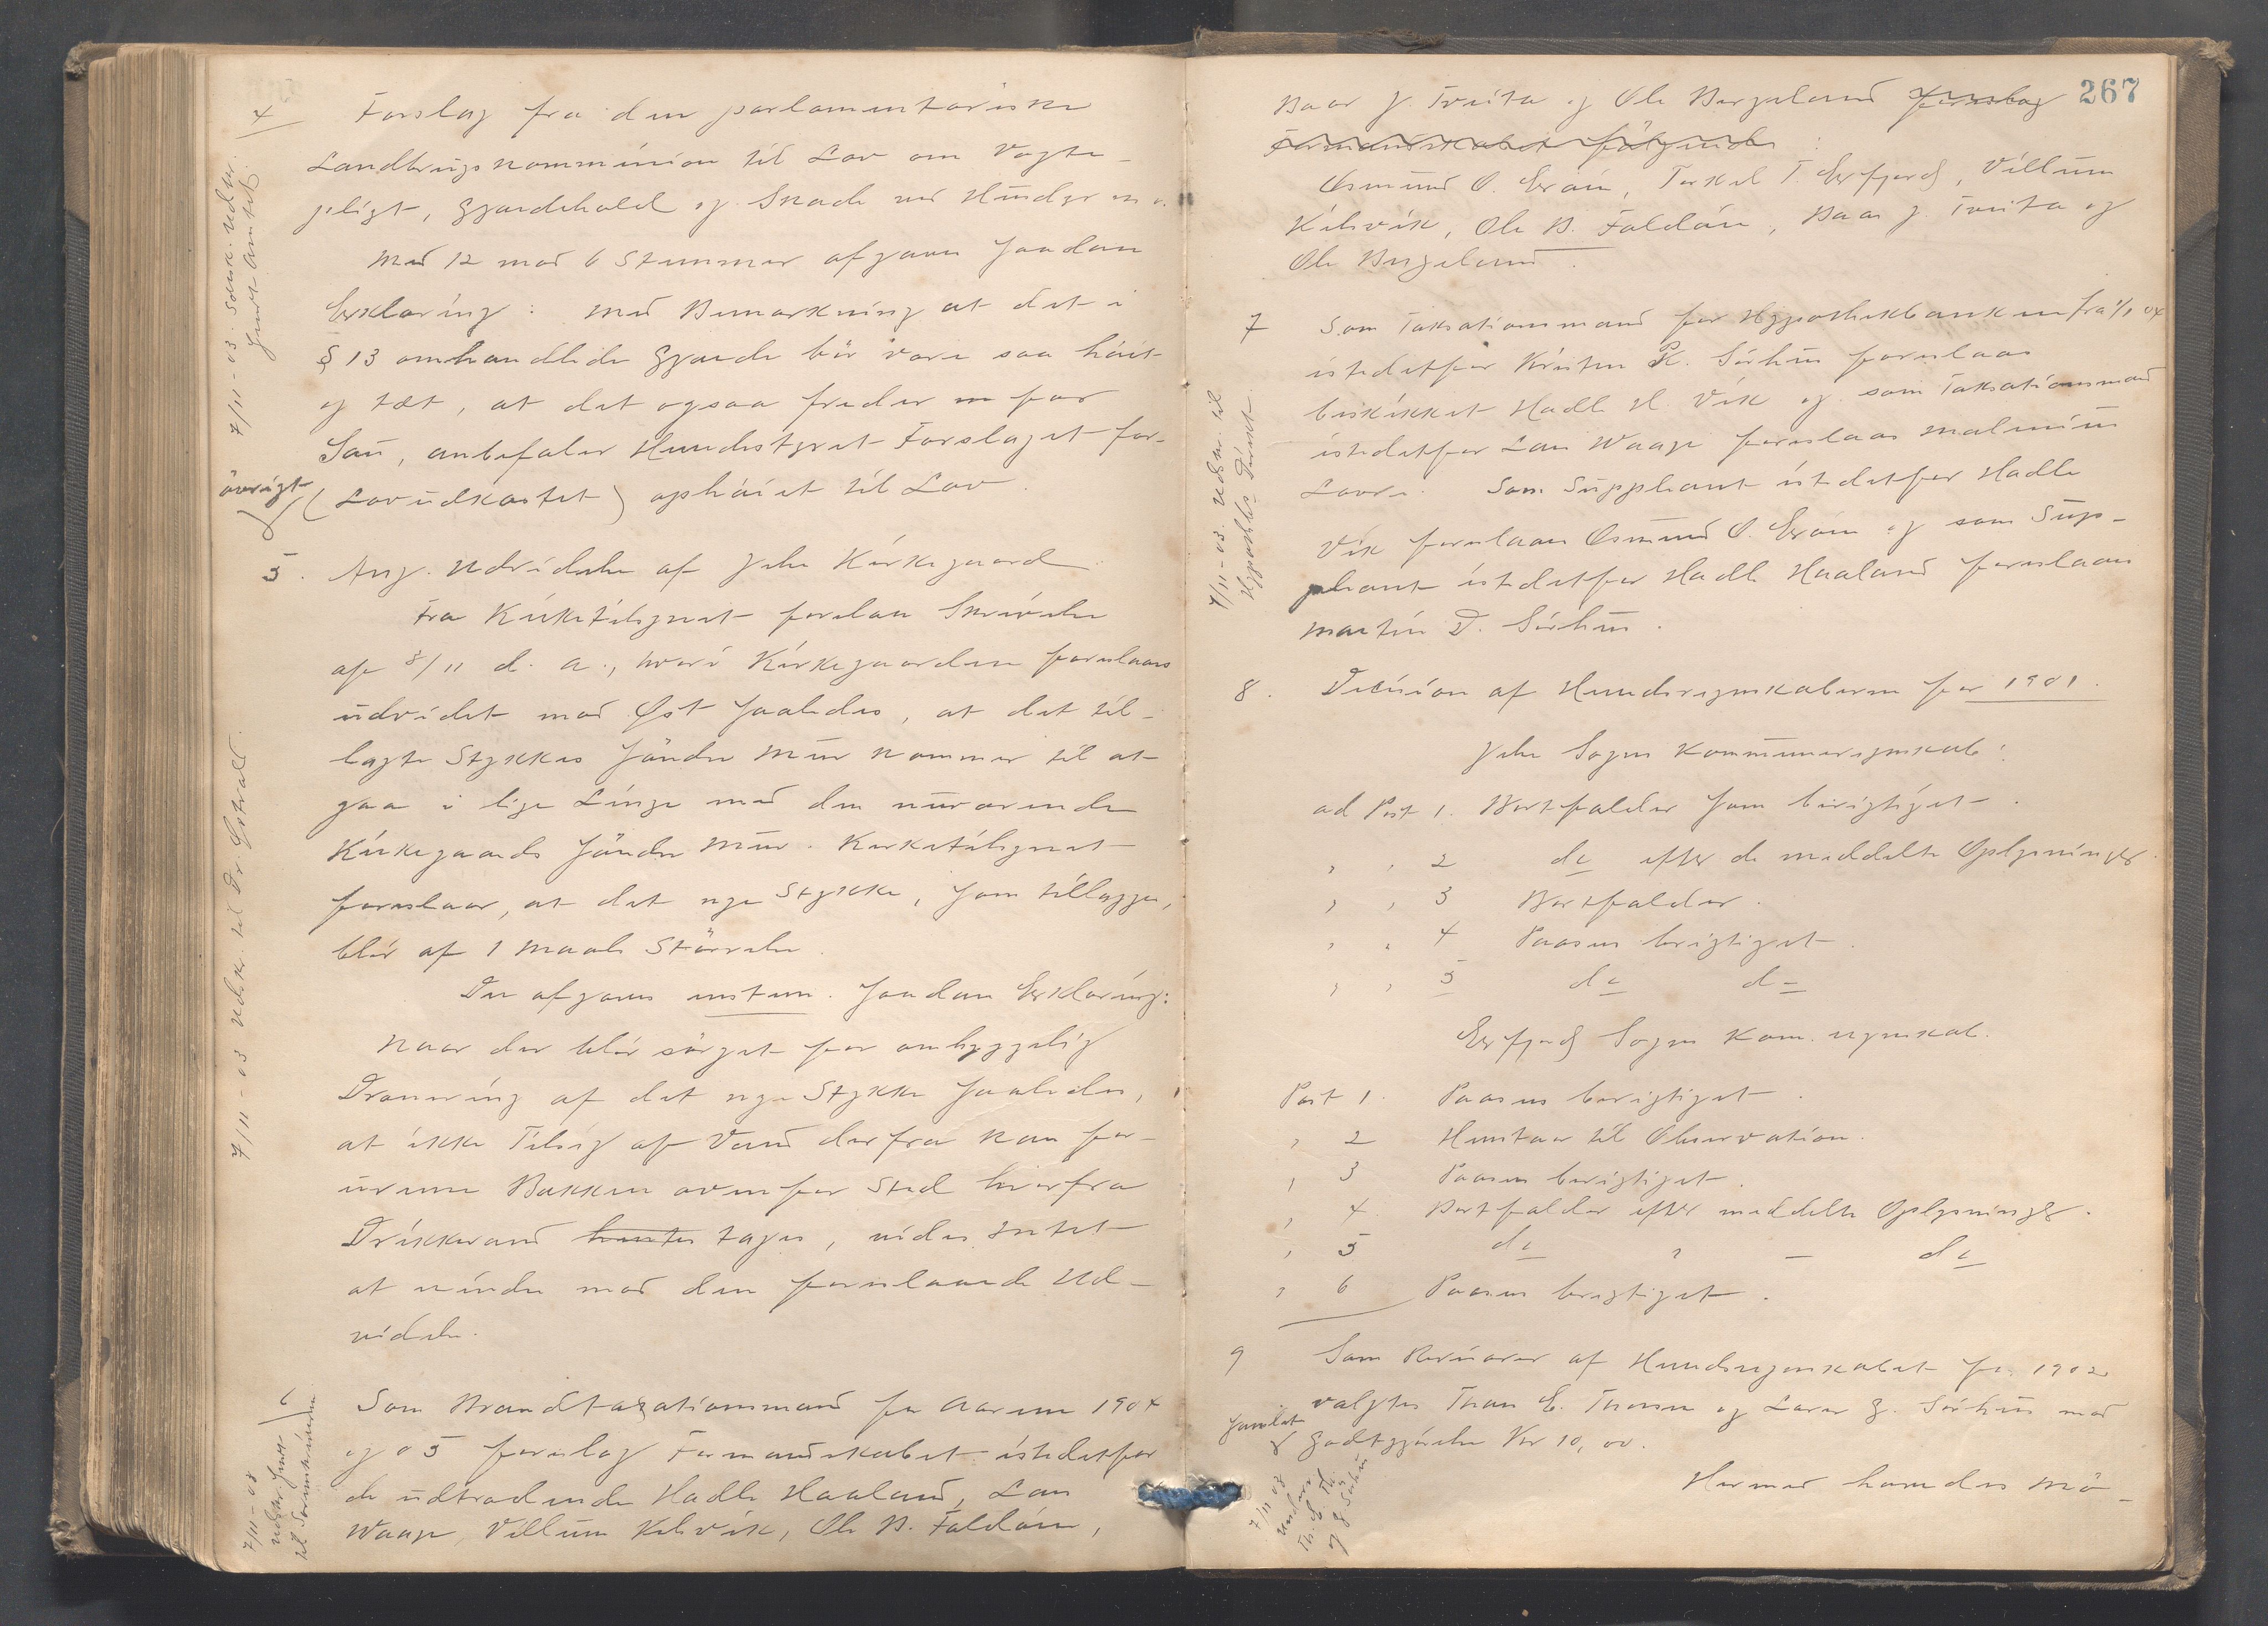 4 Forslag fra den parlamentariske
Landbrugskommission til Lov om Vogte-
pligt, Gjærdehold og Skade ved Husdyr m. v.
Med 12 mod 6 Stemmer afgaves saadan
Erklæring: Med Bemærkning at det i
§ 13 omhandlede Gjærde bør være saa høit
og tæt, at det ogsaa freder m for
Sau, anbefaler Herredstyret Forslaget for-
øvrigt (Lovudkastet) ophøiet til Lov.
7/11-03. Særsk. Udskr.
sendt Amtet
5. Ang. Udvidelse af Jelse Kirkegaard.
Fra Kirketilsynet forelaa Skrivelse
af 8/11 d. A., hvori Kirkegaarden foreslaaes
udvidet mod Øst saaledes, at det til-
lagte Stykkes søndre Mur kommer til at
gaa i lige Linje med den nuværende
Kirkegaards søndre Mur. Kirketilsynet
foreslaar, at det nye Stykke, som tillægges,
blir af 1 Maals Størrelse.
Der afgaves enstem. saadan Erklæring:
Naar der blir sørget for omhyggelig
Drænering af det nye Stykke saaledes,
at ikke Tilsig af Vand derfra kan for-
urense Bækken ovenfor Sted hvorfra
Drikkevand hentes tages, vides Intet
at erindre mod den foreslaaede Ud-
videlse.
7/11-03 Udskr. til Dr.
6 Som Brandtaxationsmænd for Aarene 1904
og 05 foreslog Formandskabet istedetfor
de udtrædende Hadle Haaland, Lars
Waage, Villum Kilevik, Ole B. Foldøen,
7/11-03
Udskr. sendt
til
267
Baar J. Tveita og Ole Bergeland foreslog
Formandskabet følgende:
Osmund O. Erøen, Torkel T. Erfjord, Villum
Kilevik, Ole B. Foldøen, Baar J. Tveita og
Ole Bergeland.
7 Som Taksationsmand for Hypothekbanken fra 1/1 04
istedetfor Kristen K. Sørhus foreslaaes
beskikket Hadle H. Vik og som Taksationsmand
istedetfor Lars Waage foreslaaes Malenius
Lovra. Som Suppleant istedetfor Hadle
Vik foreslaaes Osmund O. Erøen og som Sup-
pleant istedetfor Hadle Haaland foreslaaes
Martin D. Sørhus.
7/11-03. Udskr. til
Hypothb. Direct.
8. Decision af Herredsregnskaberne for 1901.
Jelse Sogns Kommuneregnskab:
ad Post 1. Bortfalder som berigtiget.
" " 2 do efter de meddelte Oplysninger.
" " 3 Bortfalder.
" " 4 Paasees berigtiget.
" " 5 do do
Erfjord Sogns Kom. regnskab.
Post 1. Paasees berigtiget.
" 2 Henstaar til Observation.
" 3 Paasees berigtiget.
" 4. Bortfalder efter meddelte Oplysninger.
" 5 do " - do
" 6 Paasees berigtiget.
9 Som Revisorer af Herredsregnskabet for 1902
valgtes Thore E. Thorsen og Lærer G. Sørhus mod
samlet Godtgjørelse Kr 10,00.
7/11 03
Underr.
Th. E. Th.
og G. Sørhus
Hermed hævedes Mø-